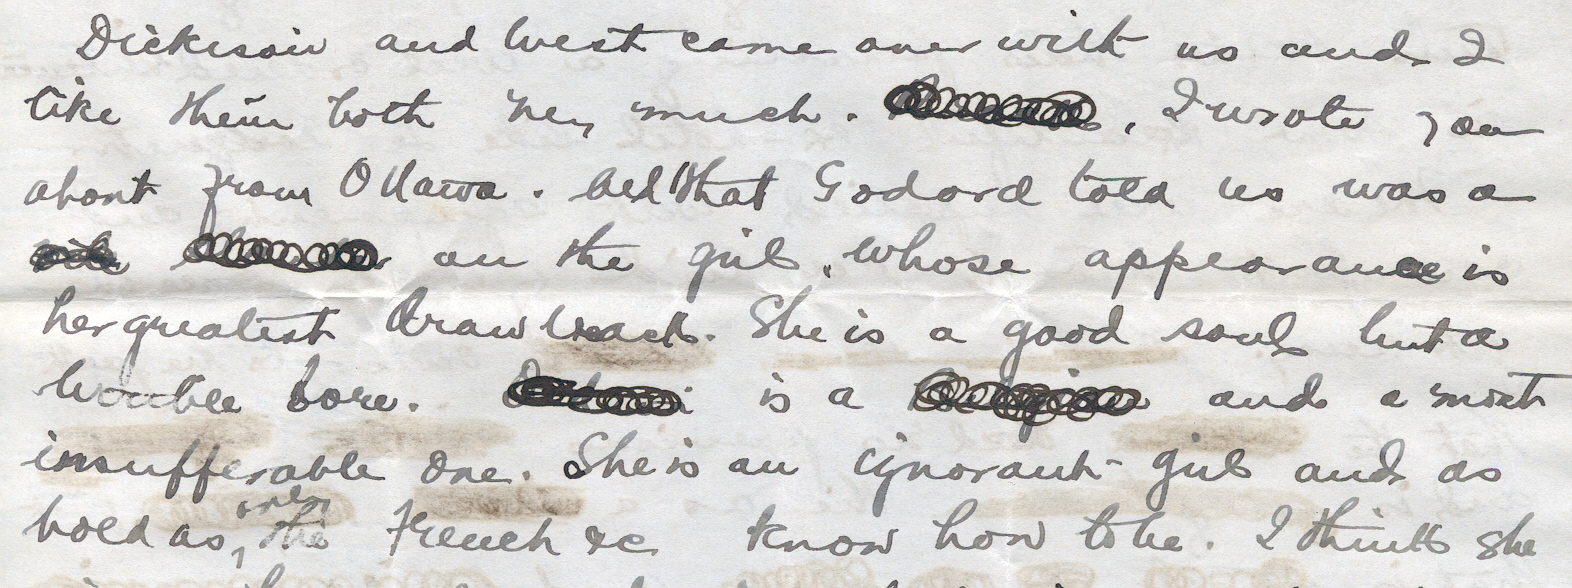 Dickison and West came over with us and I
like them both very much. , I wrote you
about from Ottawa. All that Godard told us was a
on the girl, whose appearance is
her greatest drawback. She is a good soul but a
horrible bore. is a and a most
insufferable one. She is an ignorant girl and as
bold as, only the French &c know how to be. I think she